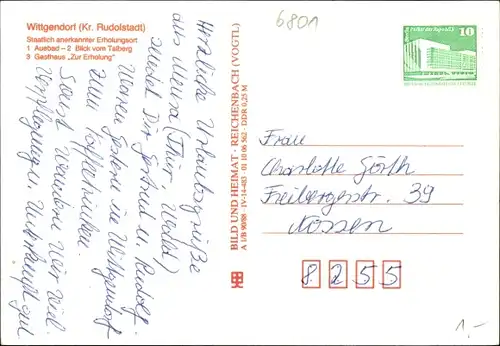 6801
Wittgendorf (Kr. Rudolstadt)
Staatlich anerkannter Erholungsort
1 Ausbad – 2 Blick vom Talberg
3 Gasthaus „Zur Erholung“
Herzliche Urlaubsgrüße
aus Meura (Thür. Wald)
sendet Dir Gertrud u. Rudolf.
Waren gestern in Wittgendorf
zum Kaffeetrinken.
Sonst wandern wir viel.
Verpflegung u. Unterkunft gut
BILD UND HEIMAT · REICHENBACH (VOGTL)
A 1/B 90/88 · IV-14-483 · 01 10 06 562 · DDR 0,25 M
10
Frau
Charlotte Görth
Freibergerstr. 39
Nossen
8 2 5 5
1,-